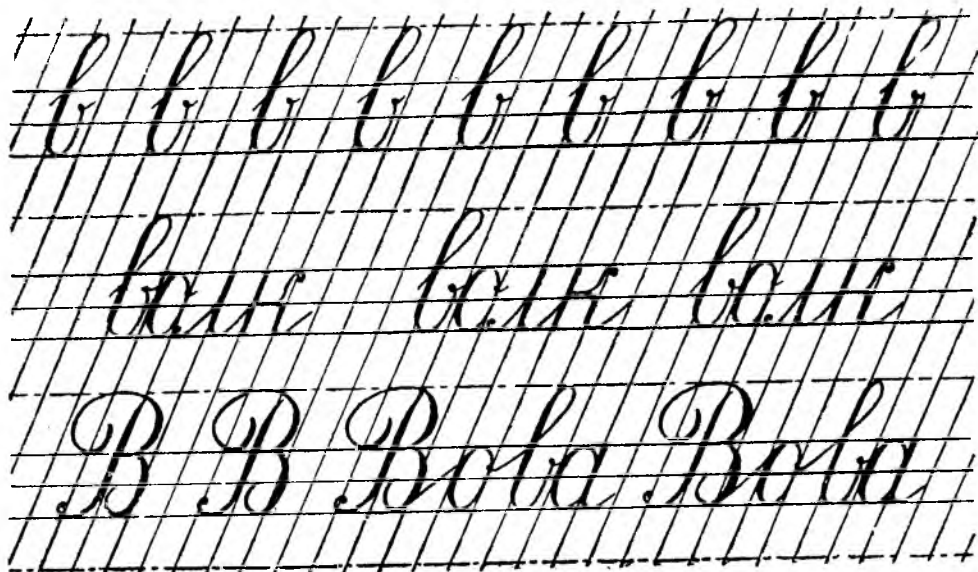 в в в в в в в в в
волк волк волк
В В Вова Вова